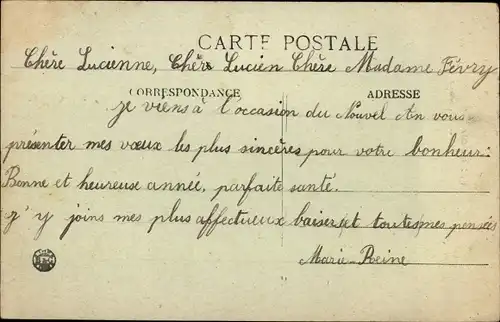 CARTE POSTALE
Chère Lucienne, Chèr Lucien Chère Madame Févry
CORRESPONDANCE ADRESSE
je viens à l'occasion du Nouvel An vous
présenter mes vœux les plus sincères pour votre bonheur:
Bonne et heureuse année, parfaite santé.
j'y joins mes plus affectueux baisers et toutes mes pensées
Marie-Reine